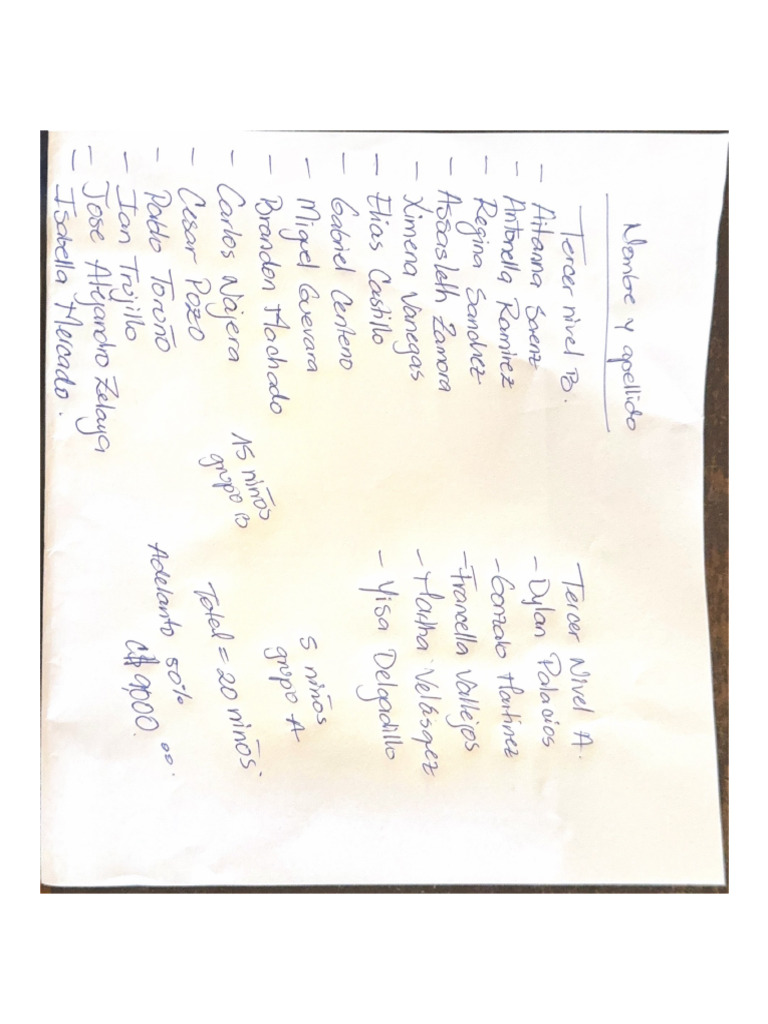 Nombre y apellido
Tercer nivel B.
- Aitanna Saenz
- Antonella Ramirez
- Regina Sanchez
- Zamora
- Ximena Vanegas
- Elias Castillo
- Gabriel Centeno
- Miguel Guevara
- Brandon Machado
- Carlos Najera
- Cesar Pozo
- Pablo Toruño
- Ian Trujillo
- Jose Alejandro Zelaya
- Isabella Mercado.
15 niños
grupo B
Tercer Nivel A.
- Dylan Palacios
- Gonzalo Martinez
- Francella Vallejos
- Martha Velásquez
- Yisa Delgadillo
5 niños
grupo A
Total = 20 niños.
Adelanto 50%
C$ 9,000.00.